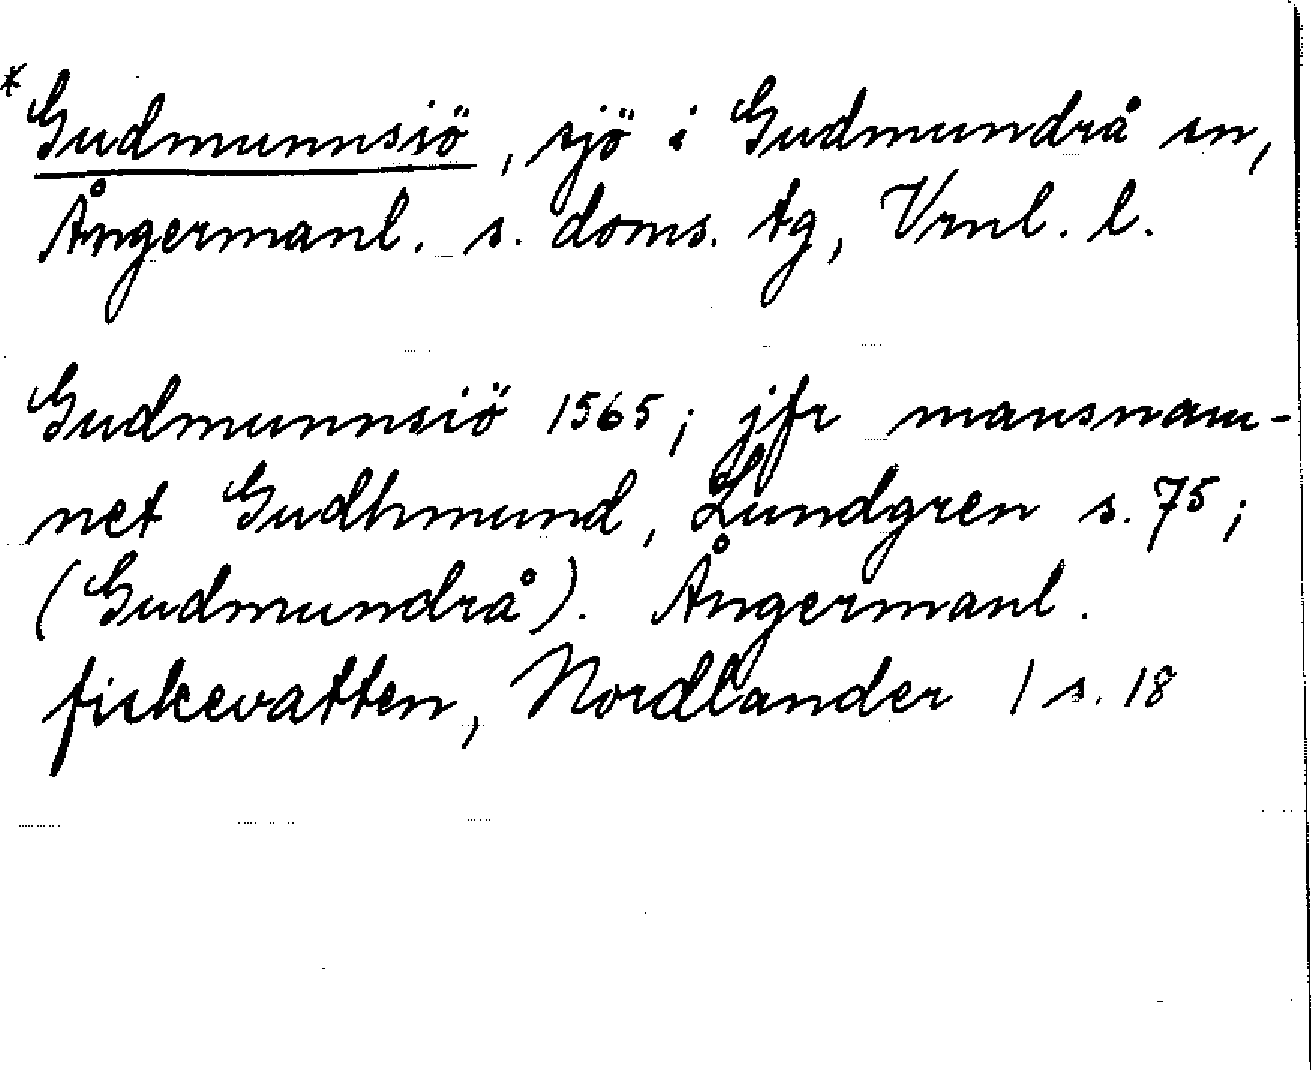 *Gudmunnsiö, sjö i Gudmundrå sn,
Ångermanl. s. doms. tg, Vrnl. l.
Gudmunnsiö 1565; jfr mansnam-
net Gudhmund, Lundgren s. 75;
(Gudmundrå). Ångermanl.
fiskevatten, Nordlander 1 s. 18